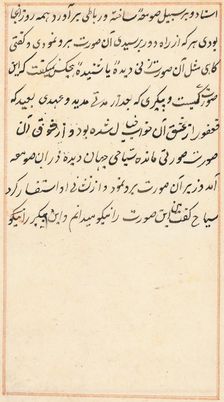 استاد بر سبیل صومعه ساخته و رباطی برآورد همه روز آنجا
بودی هر که از راه دور برسیدی آن صورت برو نمودی و گفتی
که مثل این صورت در دیده یا شنیده هیچکس نگفت که این
صورت کیست و پیکری که بعد از مدتی مدید و عهدی بعید که
فغفور از عشق آن خواب شده بود و از شوق آن
صورت صورتی مانده سیاحی جهان دیده در آن صومعه
آمد وزیر آن صورت برو نمود و از زن او استفسار کرد
سیاح گفت من این صورت را نیکو میدانم و این پیکر را نیکو